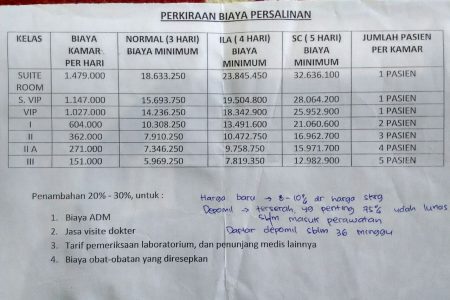 PERKIRAAN BIAYA PERSALINAN
KELAS BIAYA KAMAR PER HARI NORMAL (3 HARI) BIAYA MINIMUM ILA ( 4 HARI) BIAYA MINIMUM SC ( 5 HARI) BIAYA MINIMUM JUMLAH PASIEN PER KAMAR
SUITE ROOM 1.479.000 18.633.250 23.845.450 32.636.100 1 PASIEN
S. VIP 1.147.000 15.693.750 19.504.800 28.064.200 1 PASIEN
VIP 1.027.000 14.236.250 18.342.900 25.952.900 1 PASIEN
I 604.000 10.308.250 13.491.600 21.060.600 2 PASIEN
II 362.000 7.910.250 10.472.750 16.962.700 3 PASIEN
II A 271.000 7.346.250 9.758.750 15.971.700 4 PASIEN
III 151.000 5.969.250 7.819.350 12.982.900 5 PASIEN
Penambahan 20% - 30%, untuk :
1. Biaya ADM
2. Jasa visite dokter
3. Tarif pemeriksaan laboratorium, dan penunjang medis lainnya
4. Biaya obat-obatan yang diresepkan
Harga baru → 8-10% dr harga skrg
Deposit → terserah, yg penting 75% udah lunas
sblm masuk perawatan
Daftar deposit sblm 36 minggu